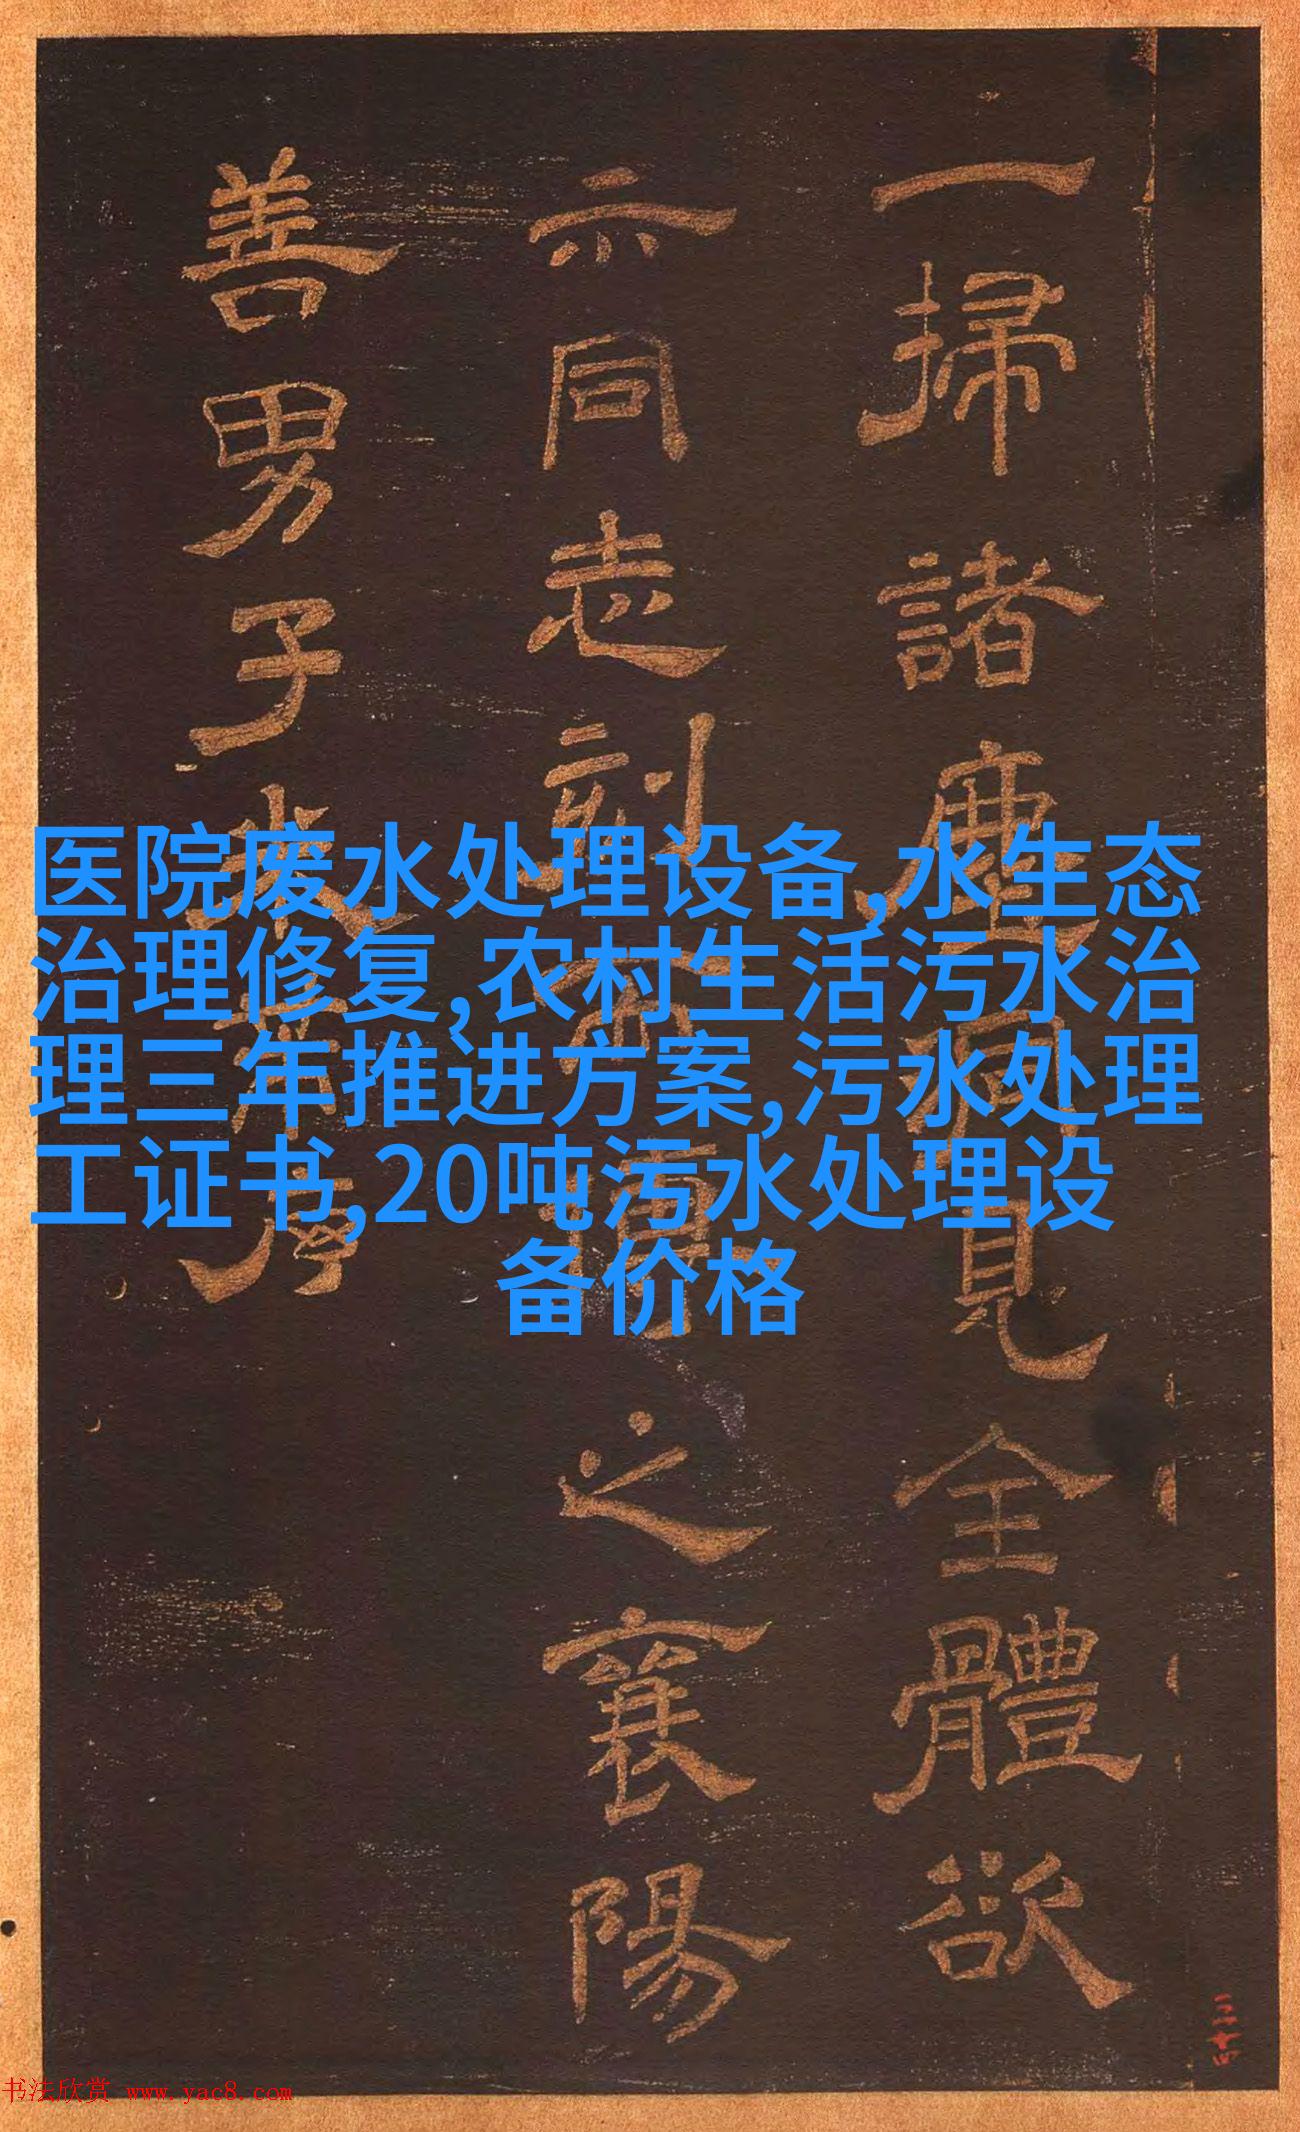 一掃諸塵洞見全體欲
示同志刻而傳之襄陽
善男子
医院废水处理设备,水生态
治理修复,农村生活污水治
理三年推进方案,污水处理
工证书,20吨污水处理设
备价格
书法欣赏 www.yac8.com